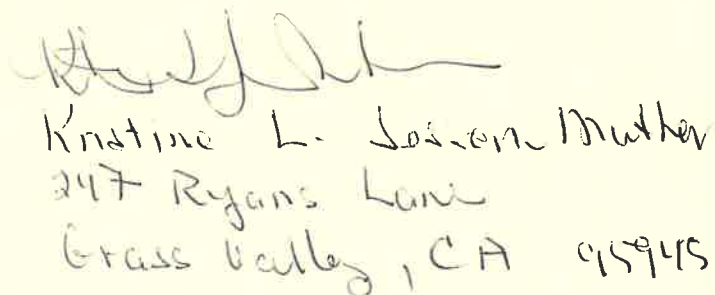 Kristine L. Muther
247 Ryans Lane
Grass Valley, CA 95945